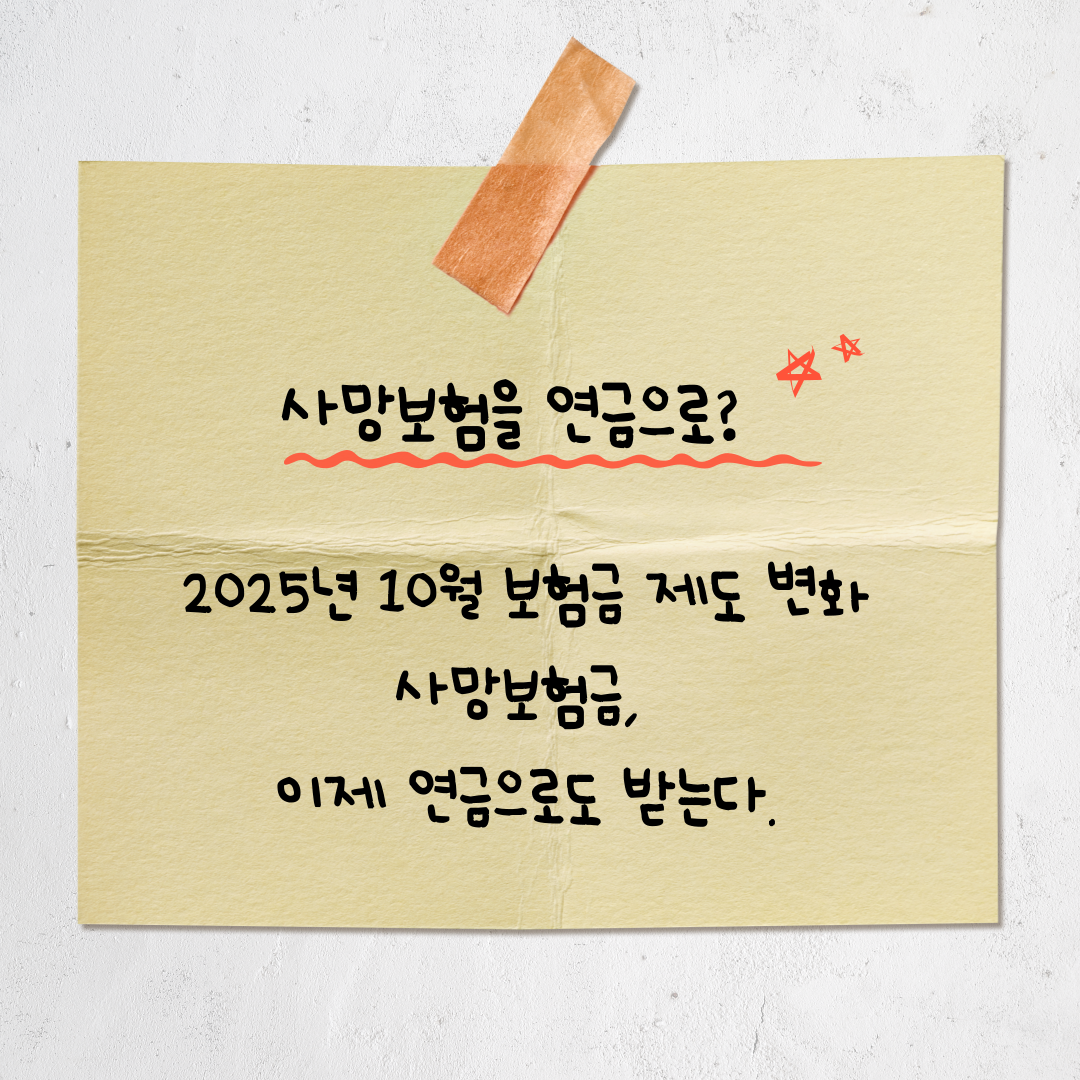 사망보험을 연금으로?
2025년 10월 보험금 제도 변화
사망보험금,
이제 연금으로도 받는다.